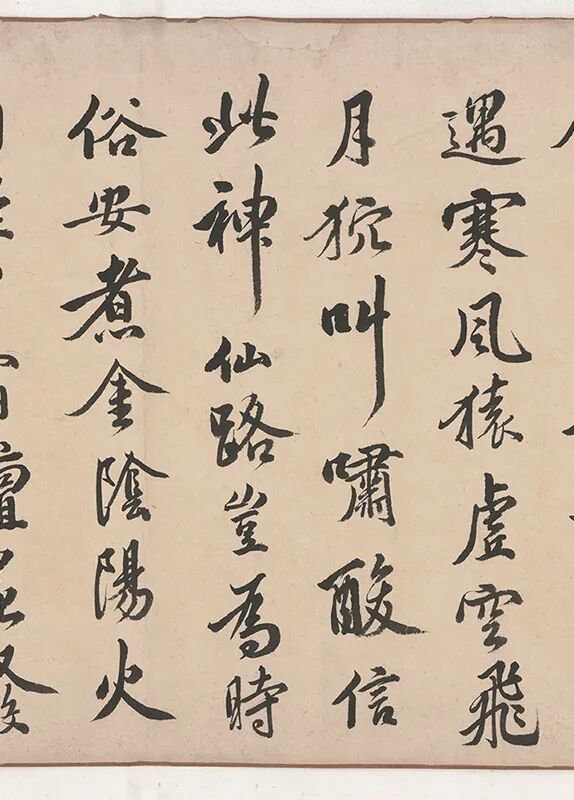 遇寒風猿虛空飛
月狖叫嘯酸信
此神仙路豈為時
俗安煮金陰陽火